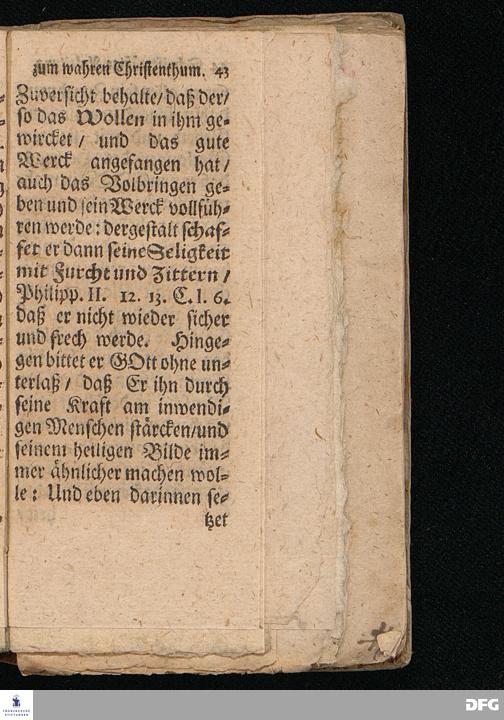 zum wahren Christenthum. 43
Zuversicht behalte/ daß der/
so das Wollen in ihm ge-
wircket / und das gute
Werck angefangen hat/
auch das Volbringen ge-
ben und sein Werck vollfüh-
ren werde: dergestalt schaf-
fet er dann seine Seligkeit
mit Furcht und Zittern /
Philipp. II. 12. 13. C. I. 6.
daß er nicht wieder sicher
und frech werde. Hinge-
gen bittet er GOtt ohne un-
terlaß / daß Er ihn durch
seine Kraft am inwendi-
gen Menschen stärcken/und
seinem heiligen Bilde im-
mer ähnlicher machen wol-
le: Und eben darinnen se-
tzet
FRANCKESCHE
STIFTUNGEN
DFG